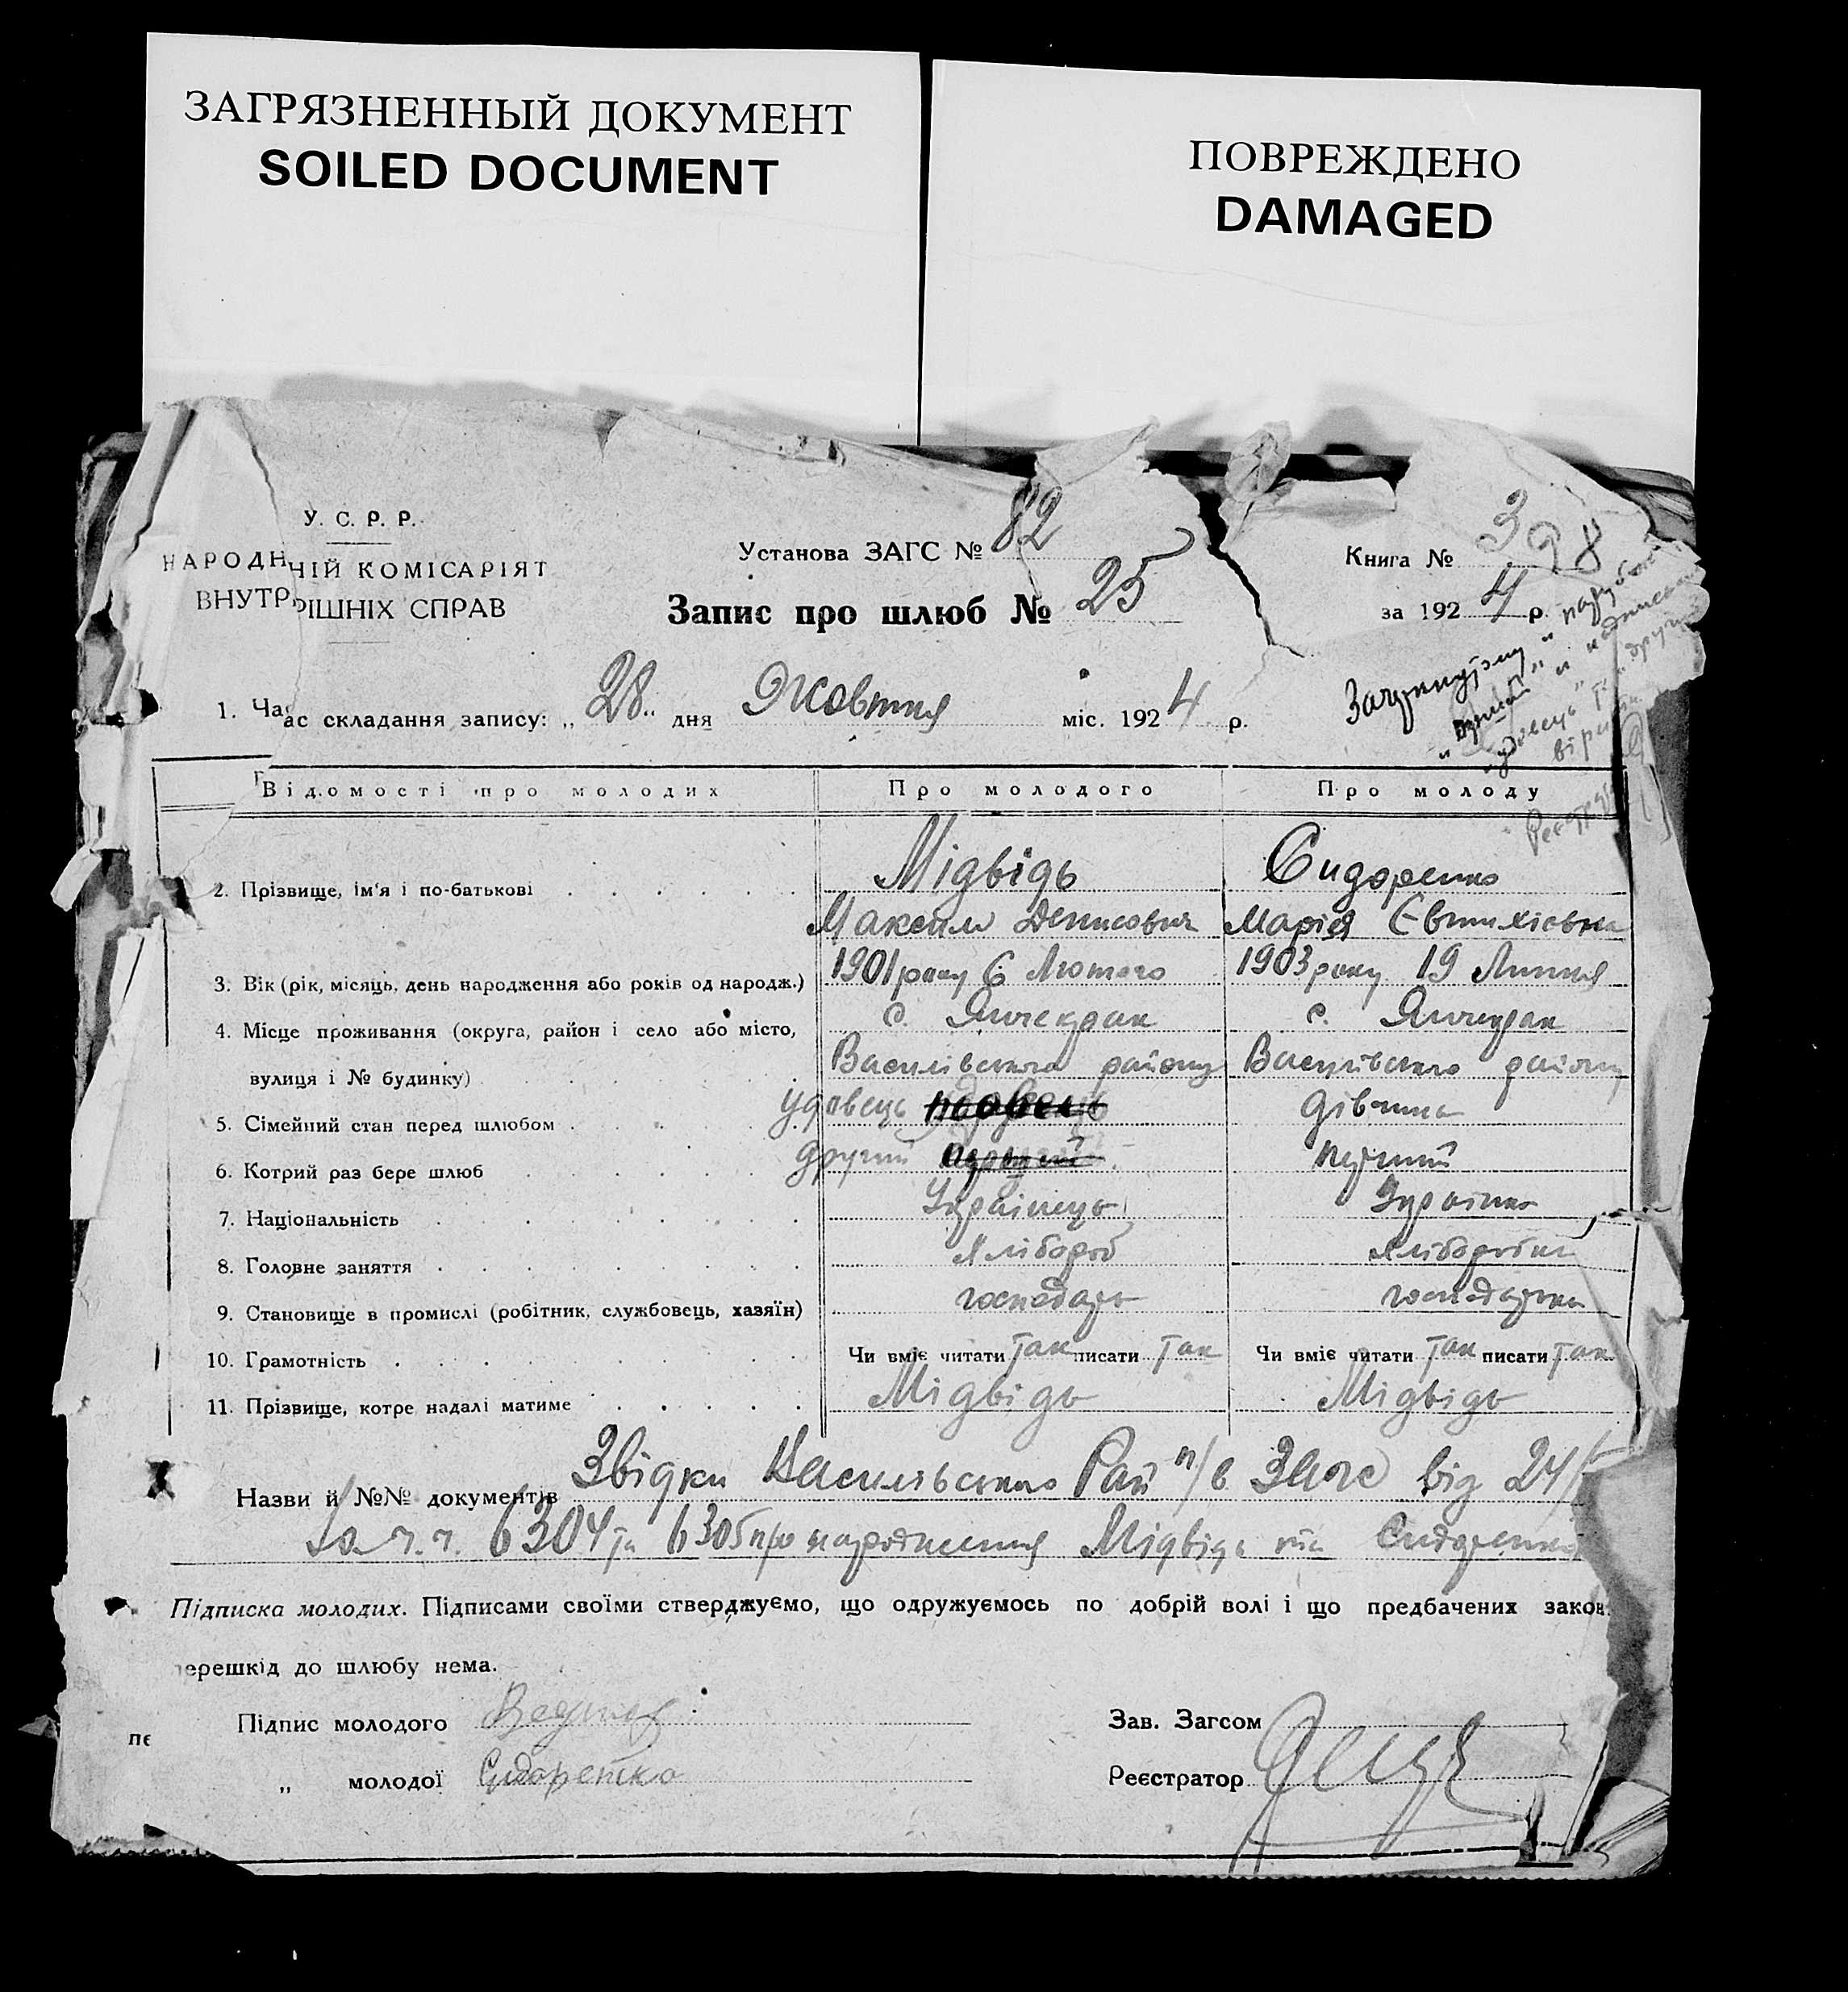 ЗАГРЯЗНЕННЫЙ ДОКУМЕНТ
SOILED DOCUMENT
ПОВРЕЖДЕНО
DAMAGED
У. С. Р. Р.
НАРОДНІЙ КОМІСАРІЯТ
ВНУТРІШНІХ СПРАВ
Установа ЗАГС № 82
Запис про шлюб № 25
Книга № 3
за 1924 р.
Закреслен
1. Час складання запису: „ 28 " дня Жовтня міс. 1924 р.
Відомості про молодих Про молодого Про молоду
2. Прізвище, ім'я і по-батькові Мідвідь Сидоренко
Максим Денисович Марія Євтихієвна
3. Вік (рік, місяць, день народження або років од народж.) 1901 року 6 Лютого 1903 року 19 Липня
4. Місце проживання (округа, район і село або місто, с. Янчекрак с. Янчекрак
вулиця і № будинку) Василівського району Василівського району
5. Сімейний стан перед шлюбом удовець дівчина
6. Котрий раз бере шлюб другий перший
7. Національність Українець Українка
8. Головне заняття Хлібороб Хліборобка
9. Становище в промислі (робітник, службовець, хазяїн) господарь господарька
10. Грамотність Чи вміє читати так писати так Чи вміє читати так писати так
11. Прізвище, котре надалі матиме Мідвідь Мідвідь
Назви й №№ документів Звідки Василівського Рай п/в Загс від 24/
за ч.ч. 6304 та 6305 про народження Мідвідь та Сидоренко
Підписка молодих. Підписами своїми стверджуємо, що одружуємось по добрій волі і що предбачених закон.
перешкід до шлюбу нема.
Підпис молодого
Зав. Загсом
„ молодої Сидоренко
Реєстратор